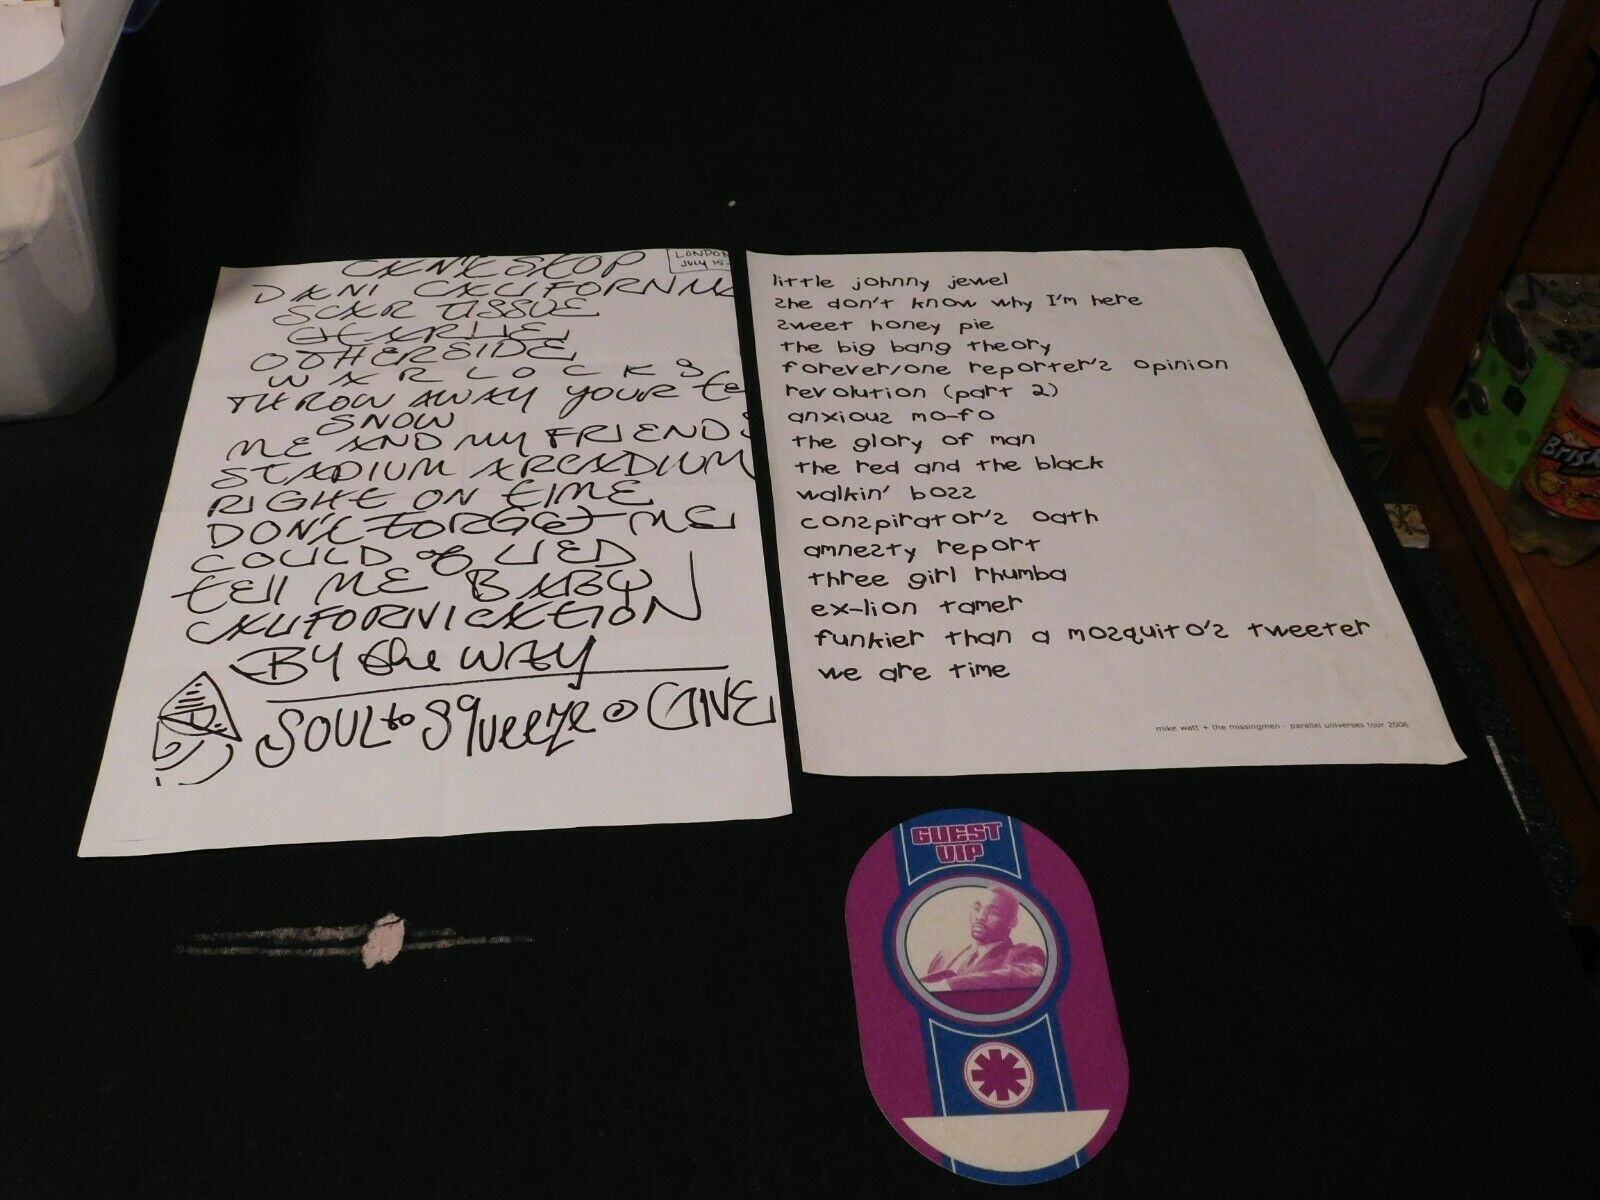 CAN'T STOP
LONDON
JULY 15
DANI CALIFORNIA
SCAR TISSUE
CHARLIE
OTHERSIDE
WARLOCKS
THROW AWAY YOUR te
SNOW
ME AND MY FRIENDS
STADIUM ARCADIUM
RIGHT ON TIME
DON'T FORGET ME
COULD of LIED
tell ME BABY
CALIFORNICATION
BY the WAY
SOUL to SQueeze GIVE
little johnny jewel
she don't know why I'm here
sweet honey pie
the big bang theory
forever/one reporter's opinion
revolution (part 2)
anxious mo-fo
the glory of man
the red and the black
walkin' boss
conspirator's oath
amnesty report
three girl rhumba
ex-lion tamer
funkier than a mosquito's tweeter
we are time
mike watt + the missingmen - parallel universes tour 2006
GUEST
VIP
Brisk